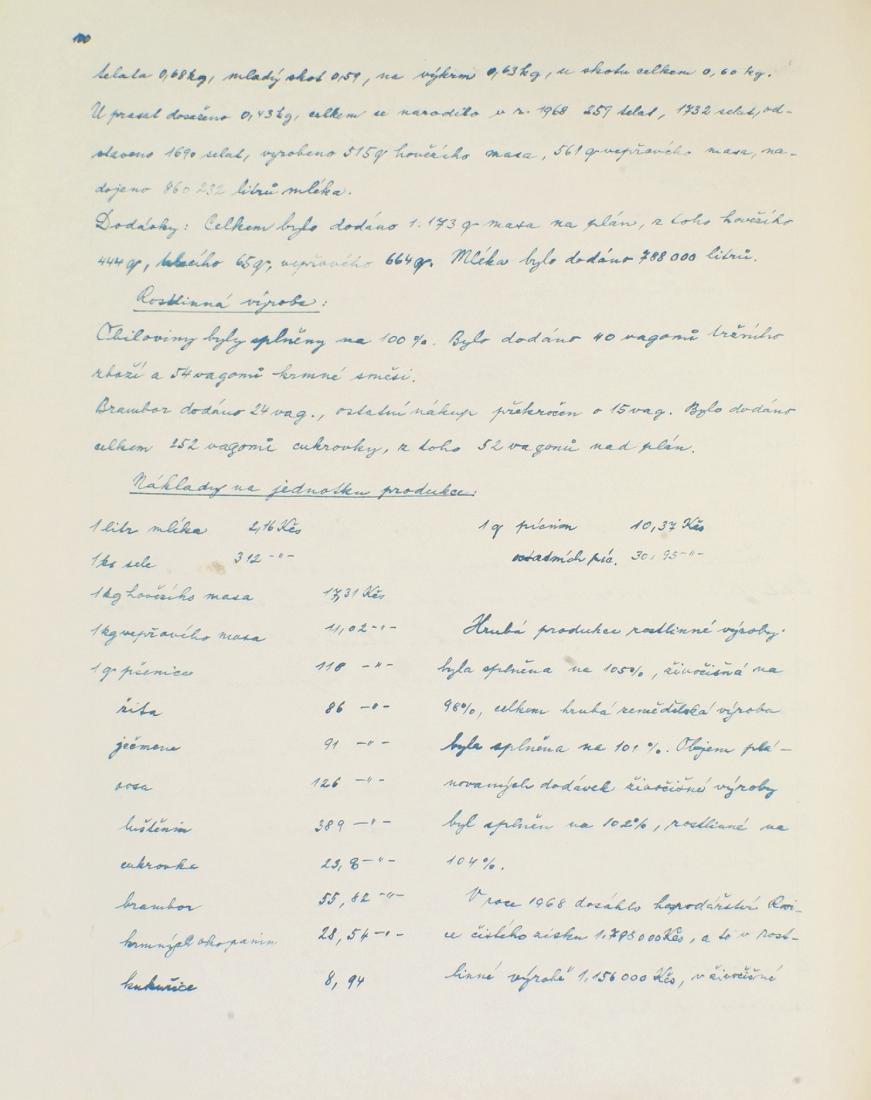 100
telata 0,68kg, mladý skot 0,59, na výkrm 0,63kg, u skotu celkem 0,60 kg.
U prasat dosaženo 0,43kg, celkem se narodilo v r. 1968 259 telat, 1732 selat, od-
staveno 1690 selat, vyrobeno 515q hovězího masa, 561q vepřového masa, na-
dojeno 860 232 litrů mléka.
Dodávky: Celkem bylo dodáno 1.173 q masa na plán, z toho hovězího
444q, telecího 65q, vepřového 664q. Mléka bylo dodáno 788 000 litrů.
Rostlinná výroba:
Obiloviny byly splněny na 100%. Bylo dodáno 40 vagonů tržního
zboží a 54 vagonů krmné směsi.
Brambor dodáno 24 vag., ostatní nákup překročen o 15 vag. Bylo dodáno
celkem 252 vagonů cukrovky, z toho 52 vagonů nad plán.
Náklady na jednotku produkce:
1 litr mléka 2,16 Kčs
1 ks sele 312 -"-
1 kg hovězího masa 17,31 Kčs
1 kg vepřového masa 11,02 -"-
1 q pšenice 118 -"-
žita 86 -"-
ječmene 91 -"-
ovsa 126 -"-
luštěnin 389 -"-
cukrovka 23,8 -"-
brambor 55,82 -"-
krmných okopanin 28,54 -"-
kukuřice 8,94
1 q pícnin 10,37 Kčs
ostatních píc. 30,95 -"-
Hrubá produkce rostlinné výroby
byla splněna na 105%, živočišná na
98%, celkem hrubá zemědělská výroba
byla splněna na 101%. Objem plá-
novaných dodávek živočišné výroby
byl splněn na 102%, rostlinné na
104%.
V roce 1968 dosáhlo hospodářství
ce čistého zisku 1.783 000 Kčs, a to v rost-
linné výrobě 1,156 000 Kčs, v živočišné